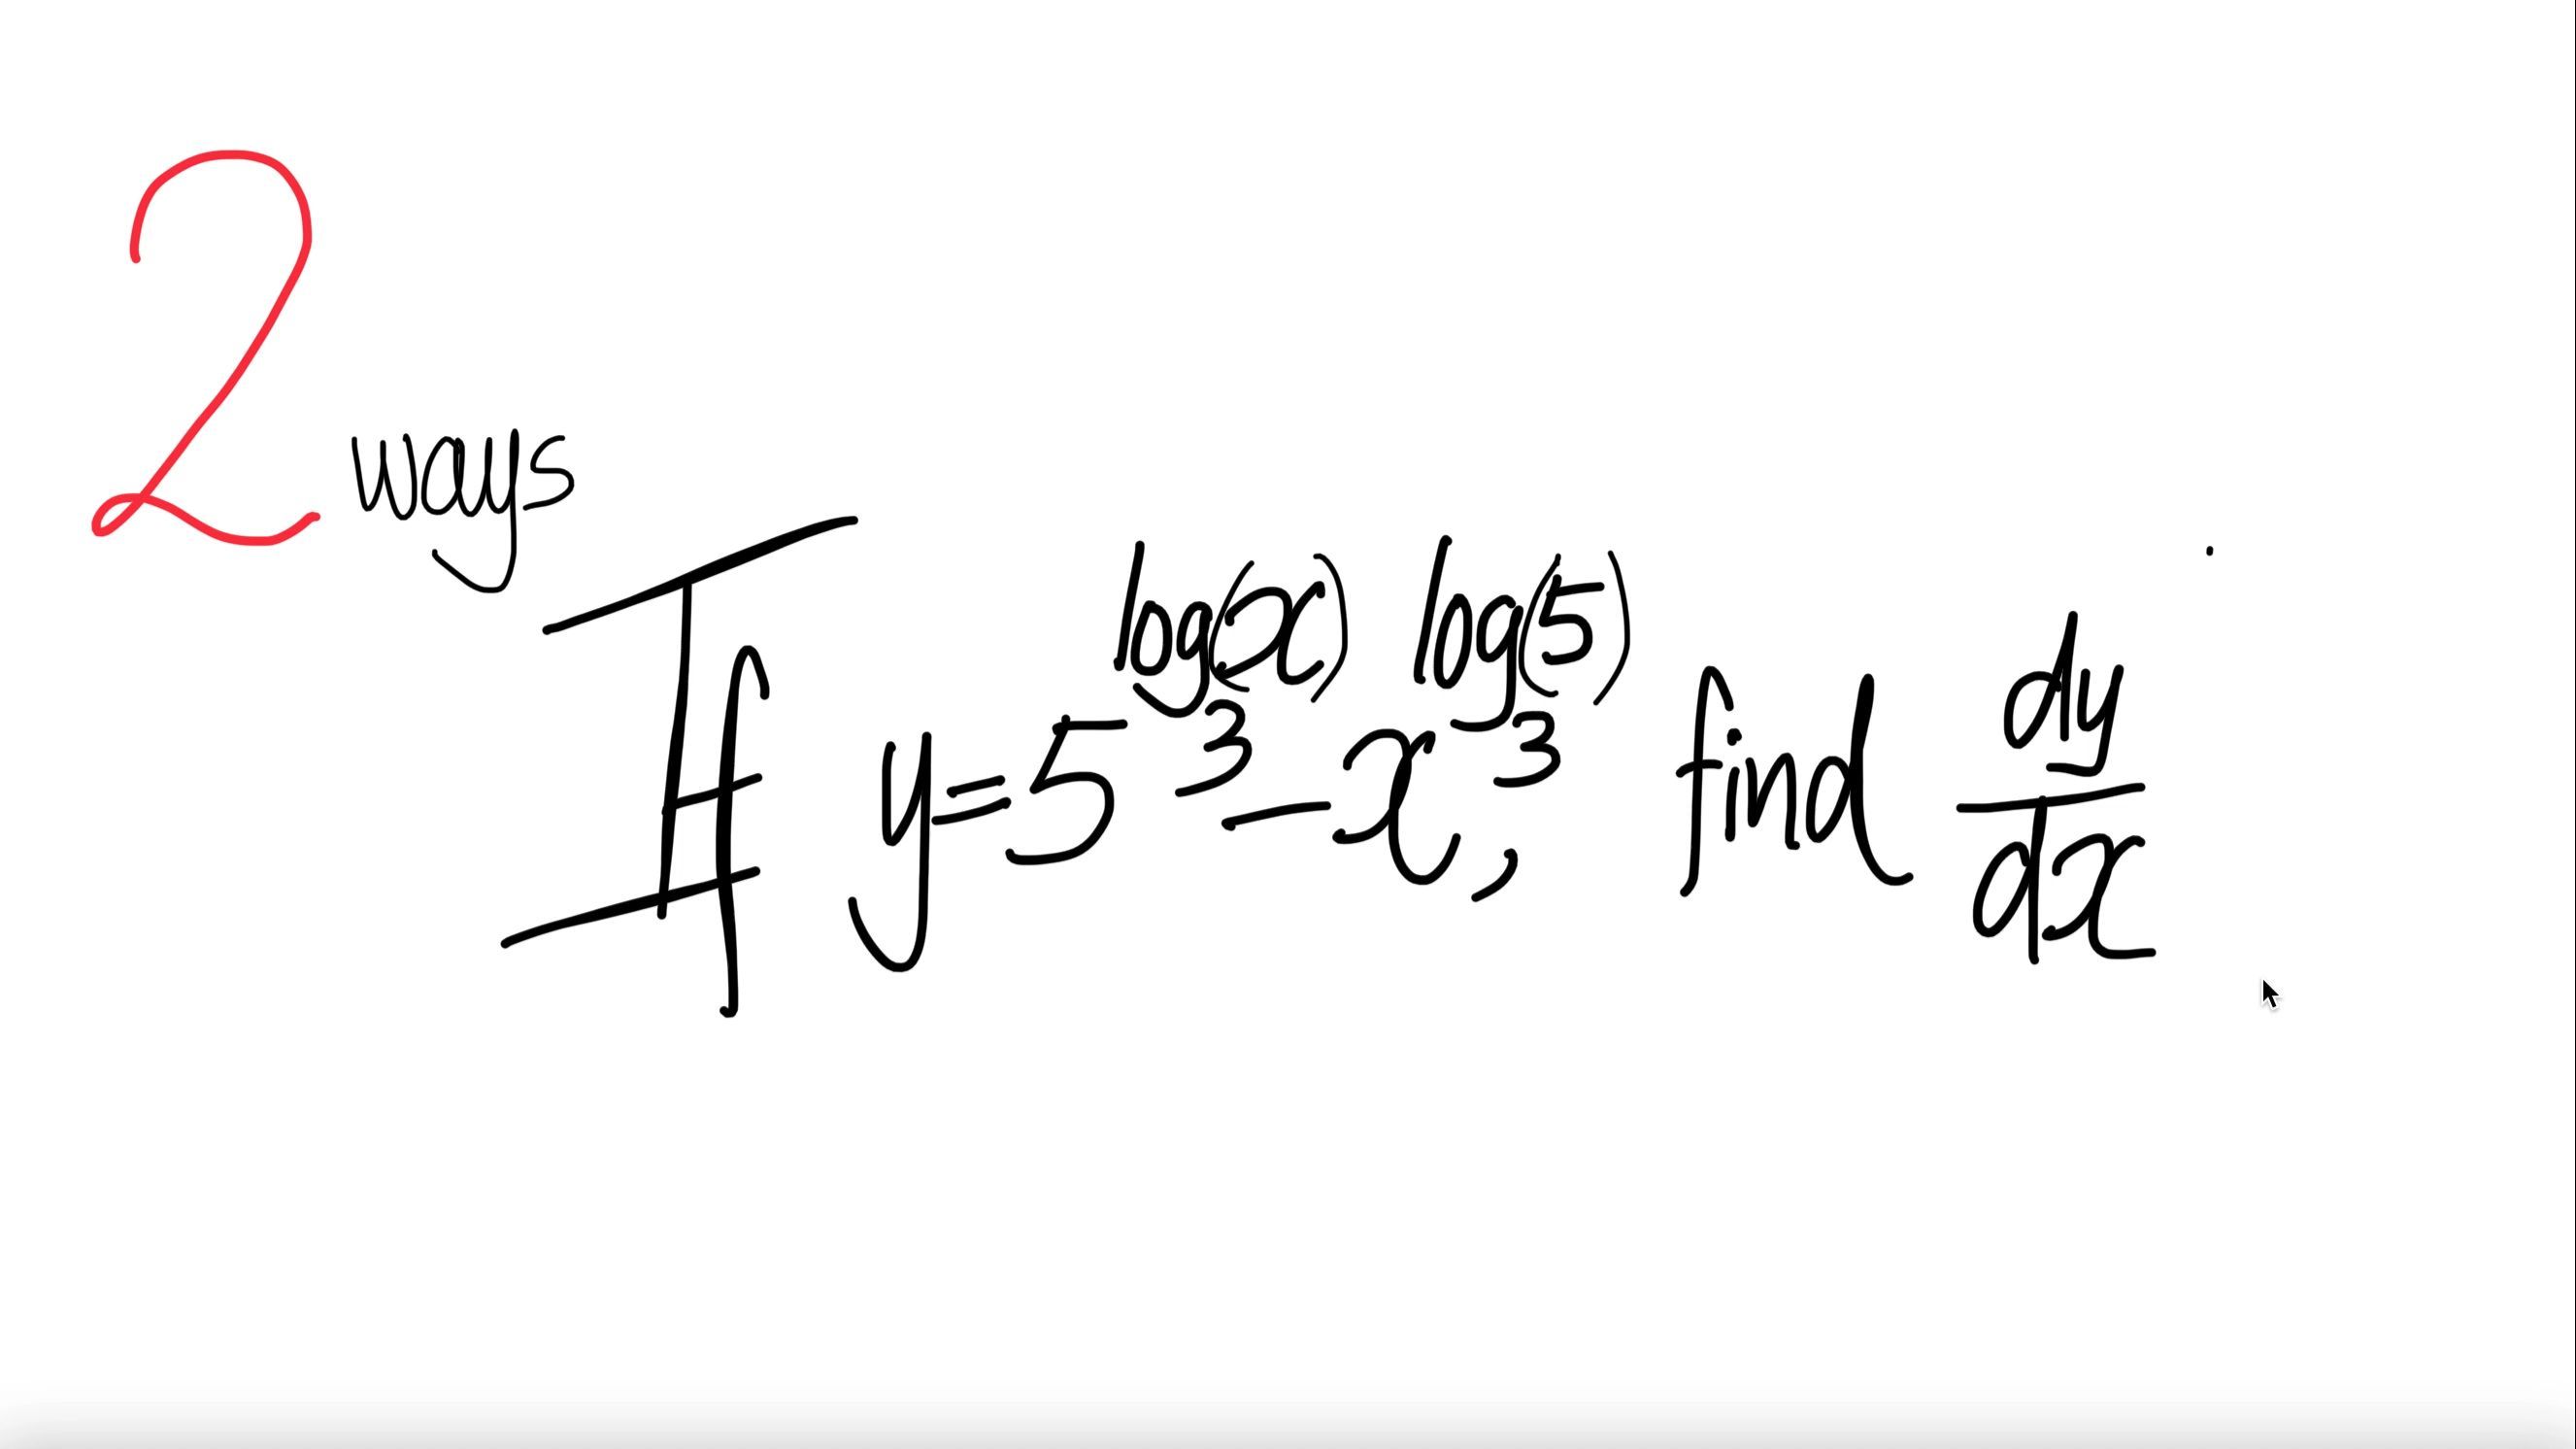 2 ways
If y=5^{log_3(x)}-x^{log_3(5)}, find dy/dx